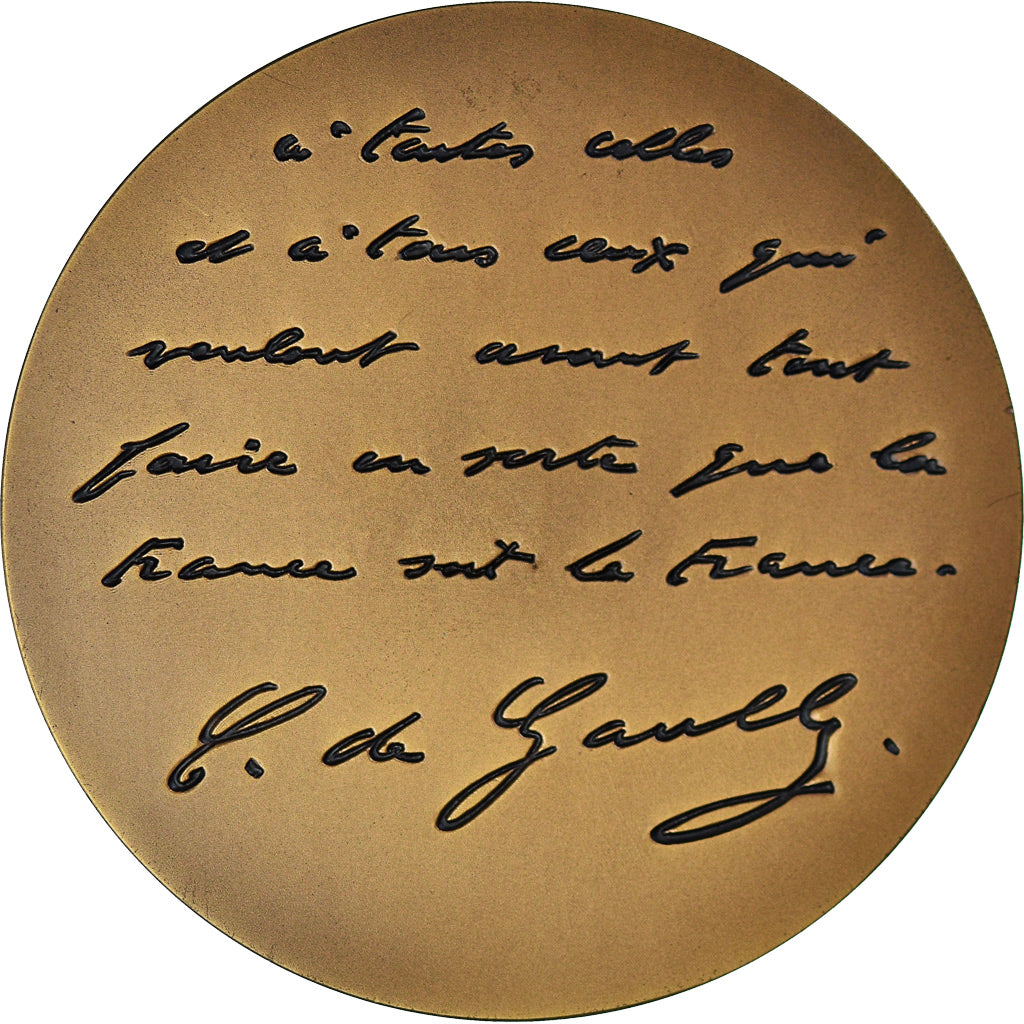 à toutes celles
et à tous ceux qui
veulent avant tout
faire en sorte que la
France soit la France.
C. de Gaulle.